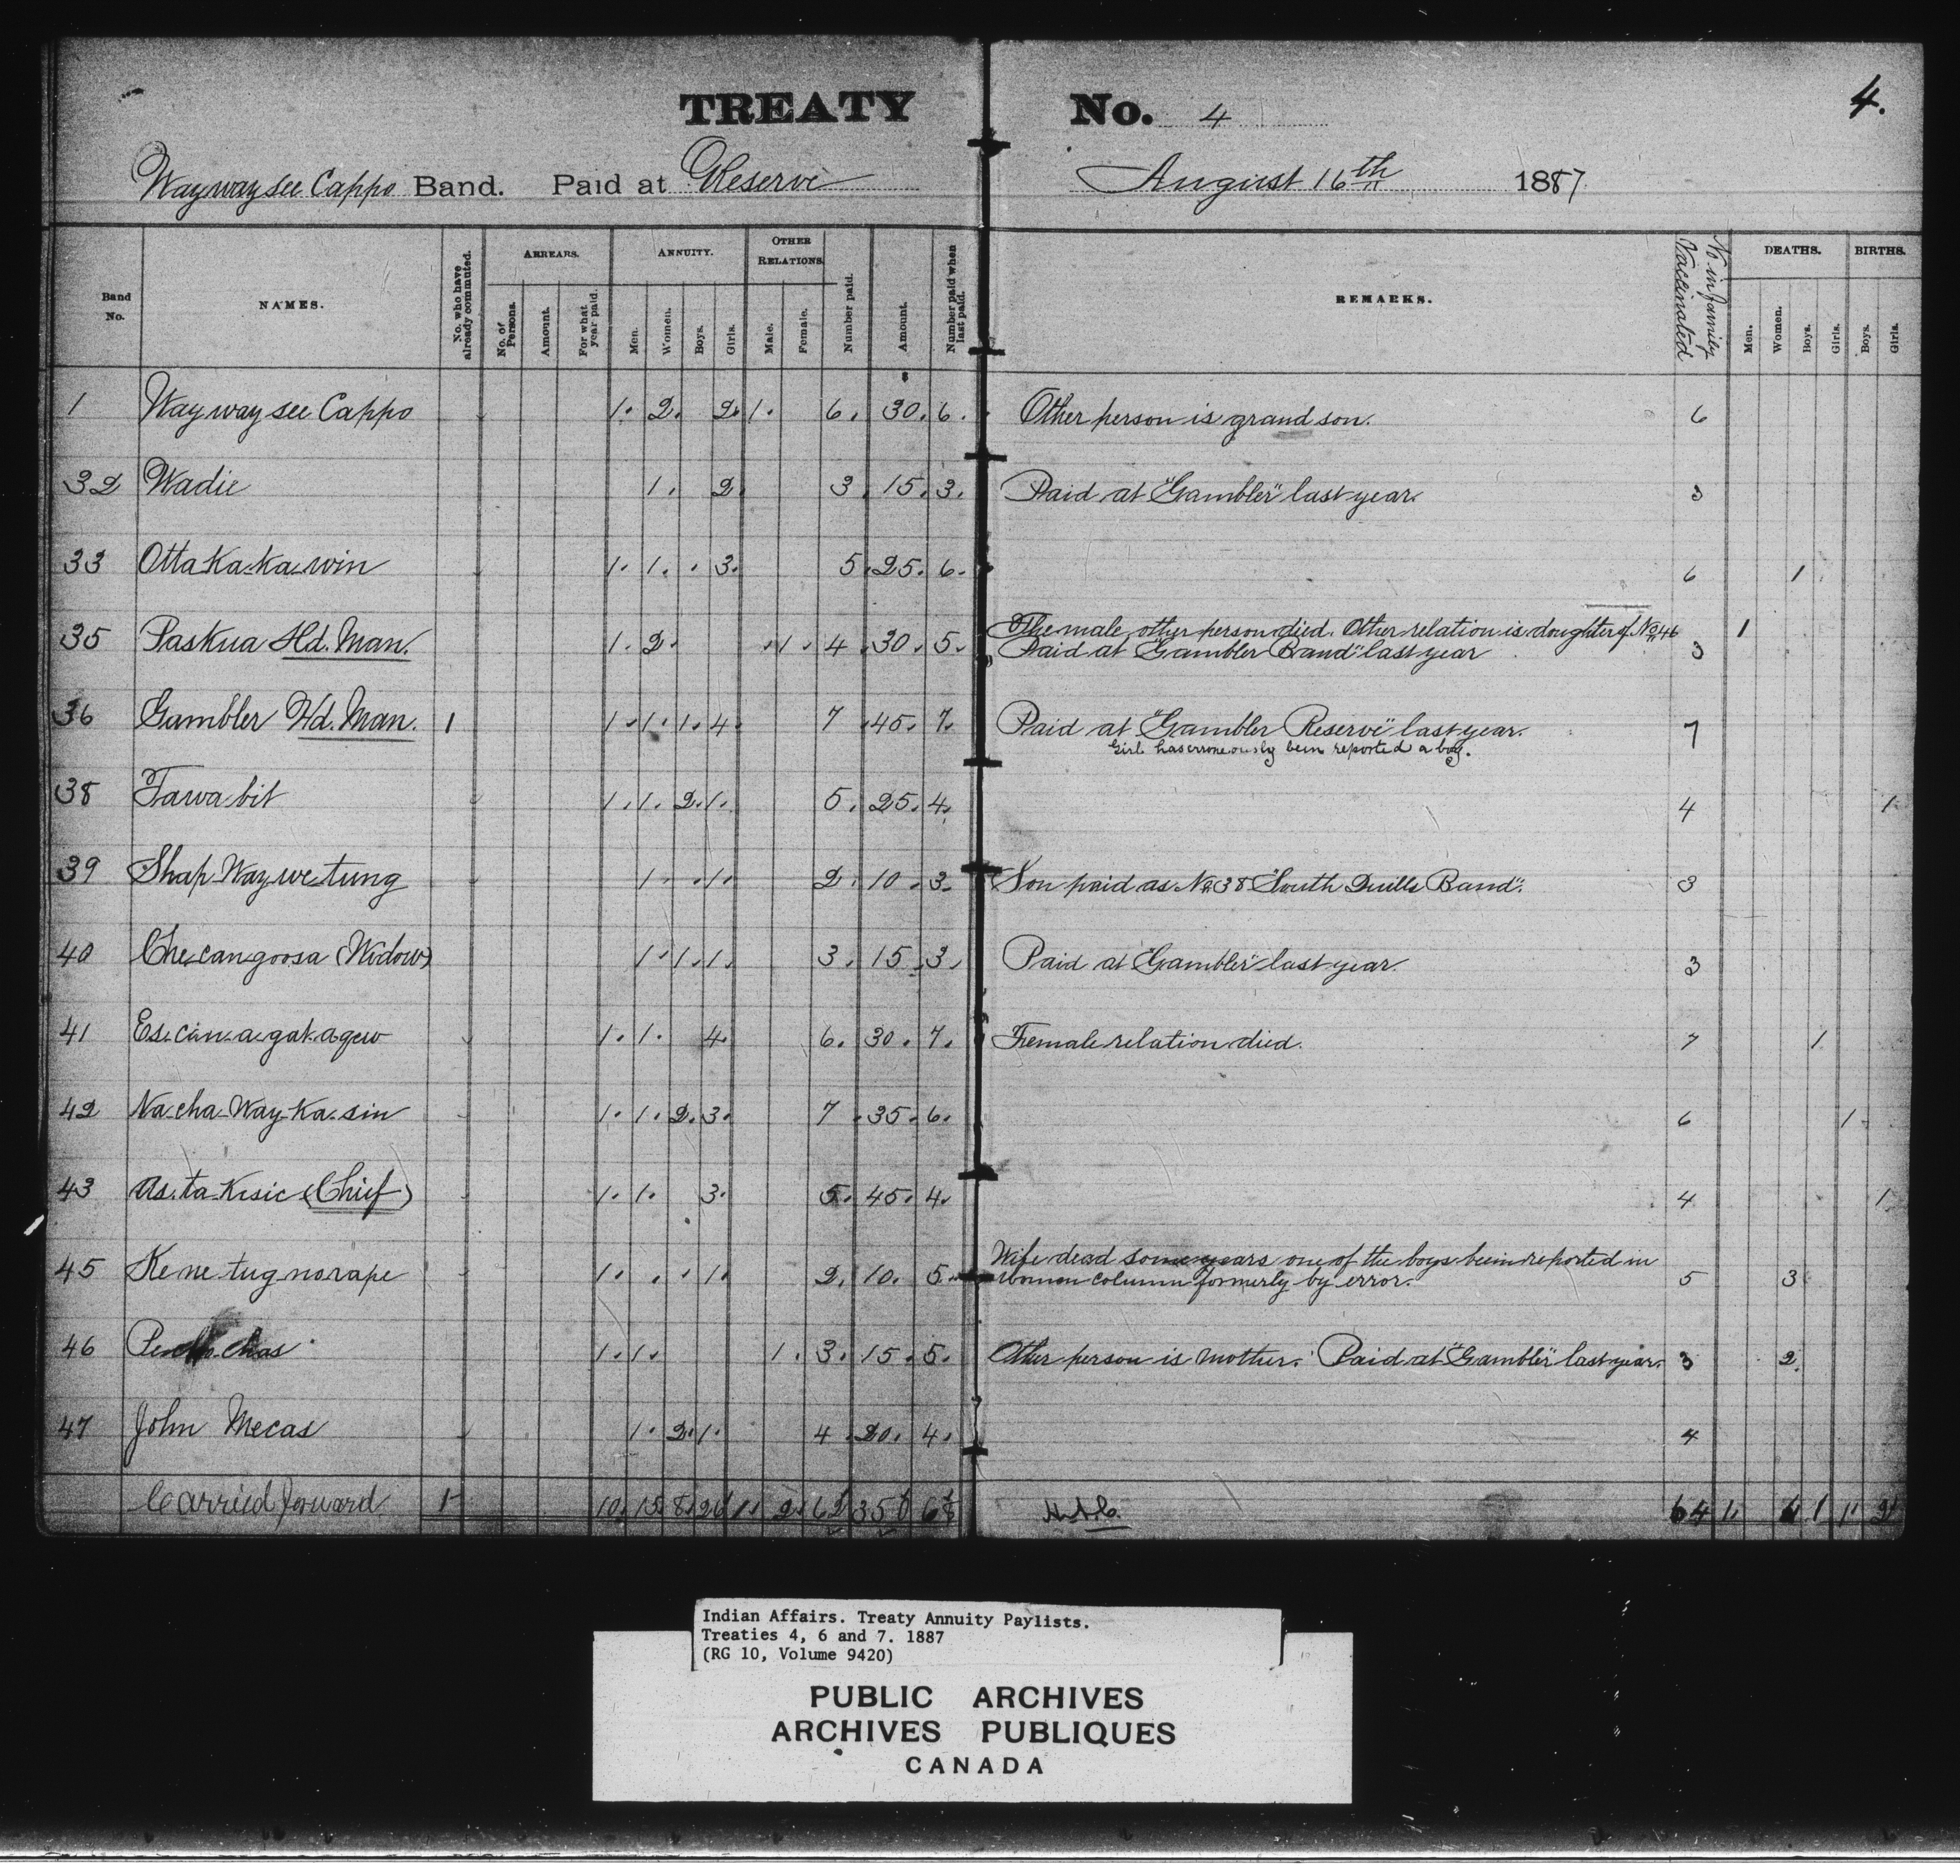 4.
TREATY No. 4
Waywaysee Cappo Band. Paid at Reserve August 16th 1887
Band No. NAMES. No. who have already commuted. ARREARS. No. of Persons. Amount. For what year paid. ANNUITY. Men. Women. Boys. Girls. OTHER RELATIONS. Male. Female. Number paid. Amount. Number paid when last paid. REMARKS. No in family Vaccinated DEATHS. Men. Women. Boys. Girls. BIRTHS. Boys. Girls.
1 Way way see Cappo 1. 2. 2. 1. 6. 30. 6. Other person is grand son. 6
32 Wadie 1. 2 3. 15. 3. Paid at "Gambler" last year. 3
33 Otta Ka-ka-win 1. 1. . 3. 5. 25. 6. 6 1
35 Paskua Hd. Man. 1. 2. 1. 4 30. 5. The male other person died. Other relation is doughter of No 46 3 1
Paid at "Gambler Band" last year
36 Gambler Hd. Man. 1 1. 1. 1. 4. 7 45. 7. Paid at "Gambler Reserve" last year. 7
Girl has erroneously been reported a boy.
38 Tawa bit 1. 1. 2. 1. 5. 25. 4. 4 1
39 Shap Way we tung 1. . 1. 2. 10. 3. Son paid as No 38 "South Quills Band". 3
40 Che can goosa (Widow) 1. 1. 1. 3. 15. 3. Paid at "Gambler" last year. 3
41 Es. cin. a. gak. agew 1. 1. 4. 6. 30. 7. Female relation died. 7 1
42 Na cha-Way-Ka. sin 1. 1. 2. 3. 7 35. 6. 6 1.
43 As. ta Kisic (Chief) 1. 1. 3. 5. 45. 4. 4 1.
45 Kene tug norape 1. . . 1. 2. 10. 5. Wife dead some years one of the boys been reported in
women column formerly by error. 5 3
46 1. 1. 1. 3. 15. 5. Other person is mother. Paid at "Gambler" last year. 3 2.
47 John Mecas 1. 2. 1. 4 20. 4. 4
Carried forward 1 10. 15. 8. 26 1. 2. 62 350 68 64 1. 6 1 1. 2
Indian Affairs. Treaty Annuity Paylists.
Treaties 4, 6 and 7. 1887
(RG 10, Volume 9420)
PUBLIC ARCHIVES
ARCHIVES PUBLIQUES
CANADA